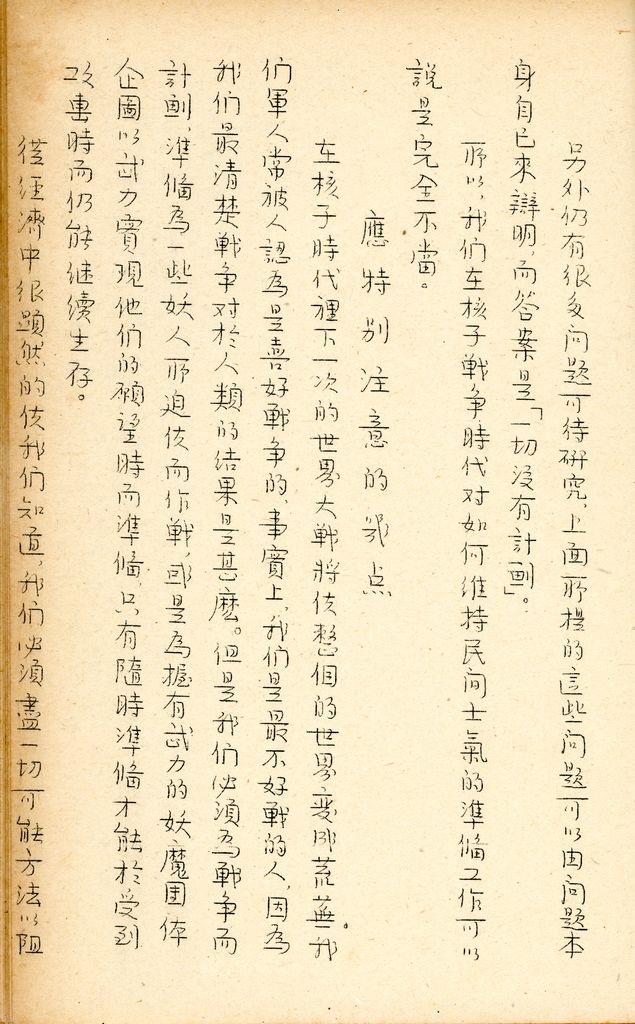 另外仍有很多问题可待研究,上面所提的這些问题可以由问题本
身自己來辯明,而答案是「一切没有計劃」。
所以,我们在核子戰争時代对如何维持民间士氣的準俻工作可以
說是完全不當。
應特别注意的幾点
在核子時代裡下一次的世界大戰將使整個的世界变成荒蕪。我
们軍人常被人認為是喜好戰争的,事實上,我们是最不好戰的人,因為
我们最清楚戰争对於人類的结果是甚麽。但是我们必須為戰争而
計劃,準俻為一些妖人所迫使而作戰,或是為握有武力的妖魔团体
企圖以武力實現他们的願望時而準俻,只有隨時準俻才能於受到
攻擊時而仍能继續生存。
從經濟中很顕然的使我们知道,我们必須盡一切可能方法以阻